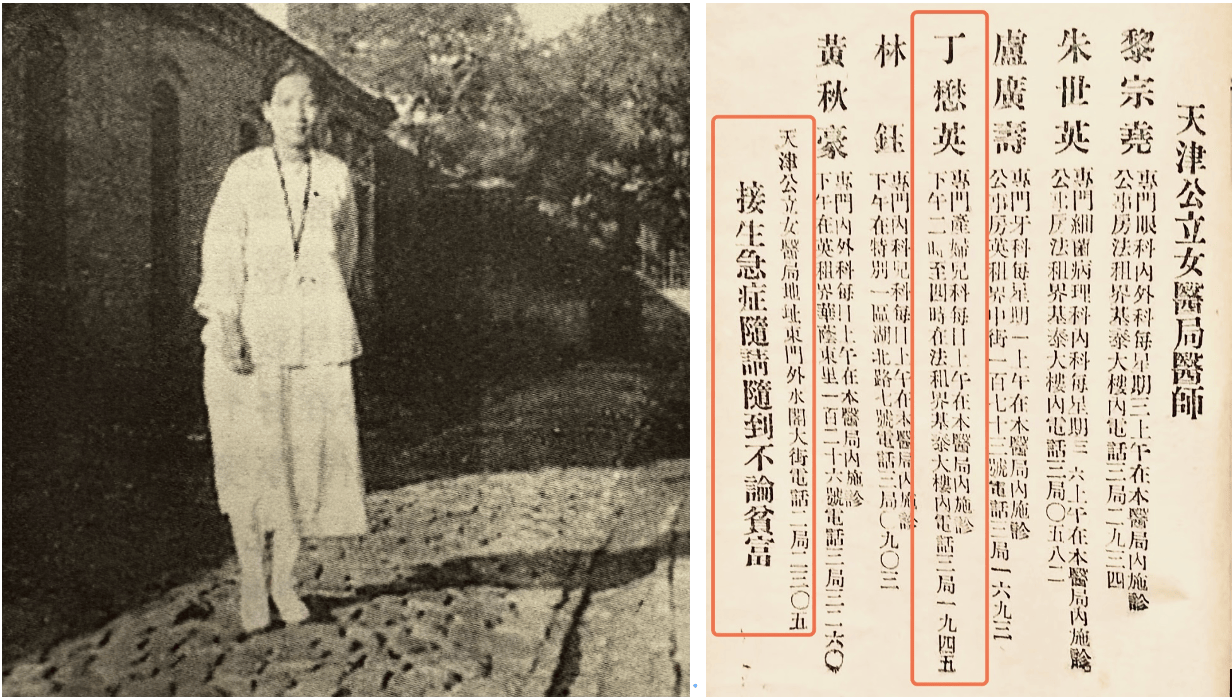 天津公立女醫局醫師
黎宗堯
專門眼科內外科每星期三上午在本醫局內施診
公事房法租界基泰大樓內電話三局二九三四
朱世英
專門細菌病理科內科每星期三六上午在本醫局內施診
公事房法租界基泰大樓內電話三局〇五八二
盧廣壽
專門牙科每星期一上午在本醫局內施診
公事房英租界中街一百七十三號電話三局一六九三
丁懋英
專門產婦兒科每日上午在本醫局內施診
下午二時至四時在法租界基泰大樓內電話三局一九四五
林鈺
專門內科兒科每日上午在本醫局內施診
下午在特別一區湖北路七號電話三局〇九〇三
黃秋豪
專門內外科每日上午在本醫局內施診
下午在英租界華蔭東里一百二十六號電話三局三二六〇
天津公立女醫局地址東門外水閣大街電話二局二三〇五
接生急症隨請隨到不論貧富